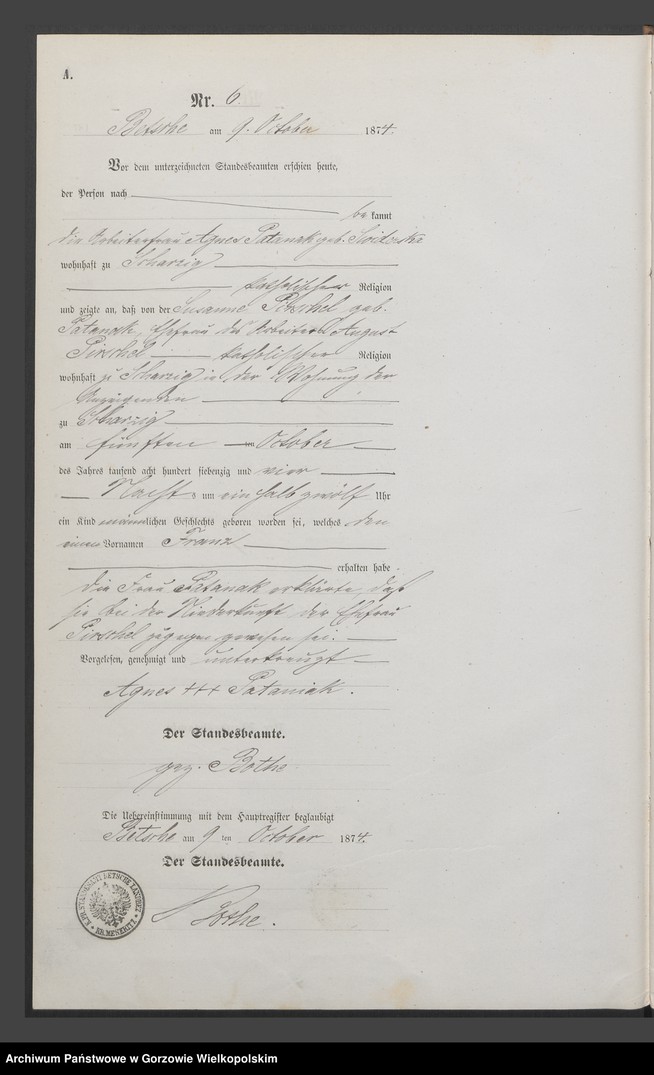 A.
Nr. 6.
Betsche am 9. October 1874.
Vor dem unterzeichneten Standesbeamten erschien heute,
der Person nach
be kannt
die Arbeiterfrau Agnes Patanak geb.
wohnhaft zu Scharzig
katholischer Religion
und zeigte an, daß von der Susanne Pirschel geb.
Patanak, Ehefrau des Arbeiters August
Pirschel katholischer Religion
wohnhaft zu Scharzig in der Wohnung der
Anzeigenden
zu Scharzig
am fünften ten October
des Jahres tausend acht hundert siebenzig und vier
Nachts um ein halb zwölf Uhr
ein Kind männlichen Geschlechts geboren worden sei, welches den
einen Vornamen Franz
erhalten habe.
Die Frau Patanak erklärte, daß
sie bei der Niederkunft der Ehefrau
Pirschel zugegen gewesen sei.
Vorgelesen, genehmigt und unterkreuzt
Agnes +++ Pataniak.
Der Standesbeamte.
gez. Bothe
Die Uebereinstimmung mit dem Hauptregister beglaubigt
Betsche am 9 ten October 1874.
Der Standesbeamte.
Bothe.
K.PR.STANDESAMT BETSCHE LANDBEZ. * KR. MESERITZ *
Archiwum Państwowe w Gorzowie Wielkopolskim